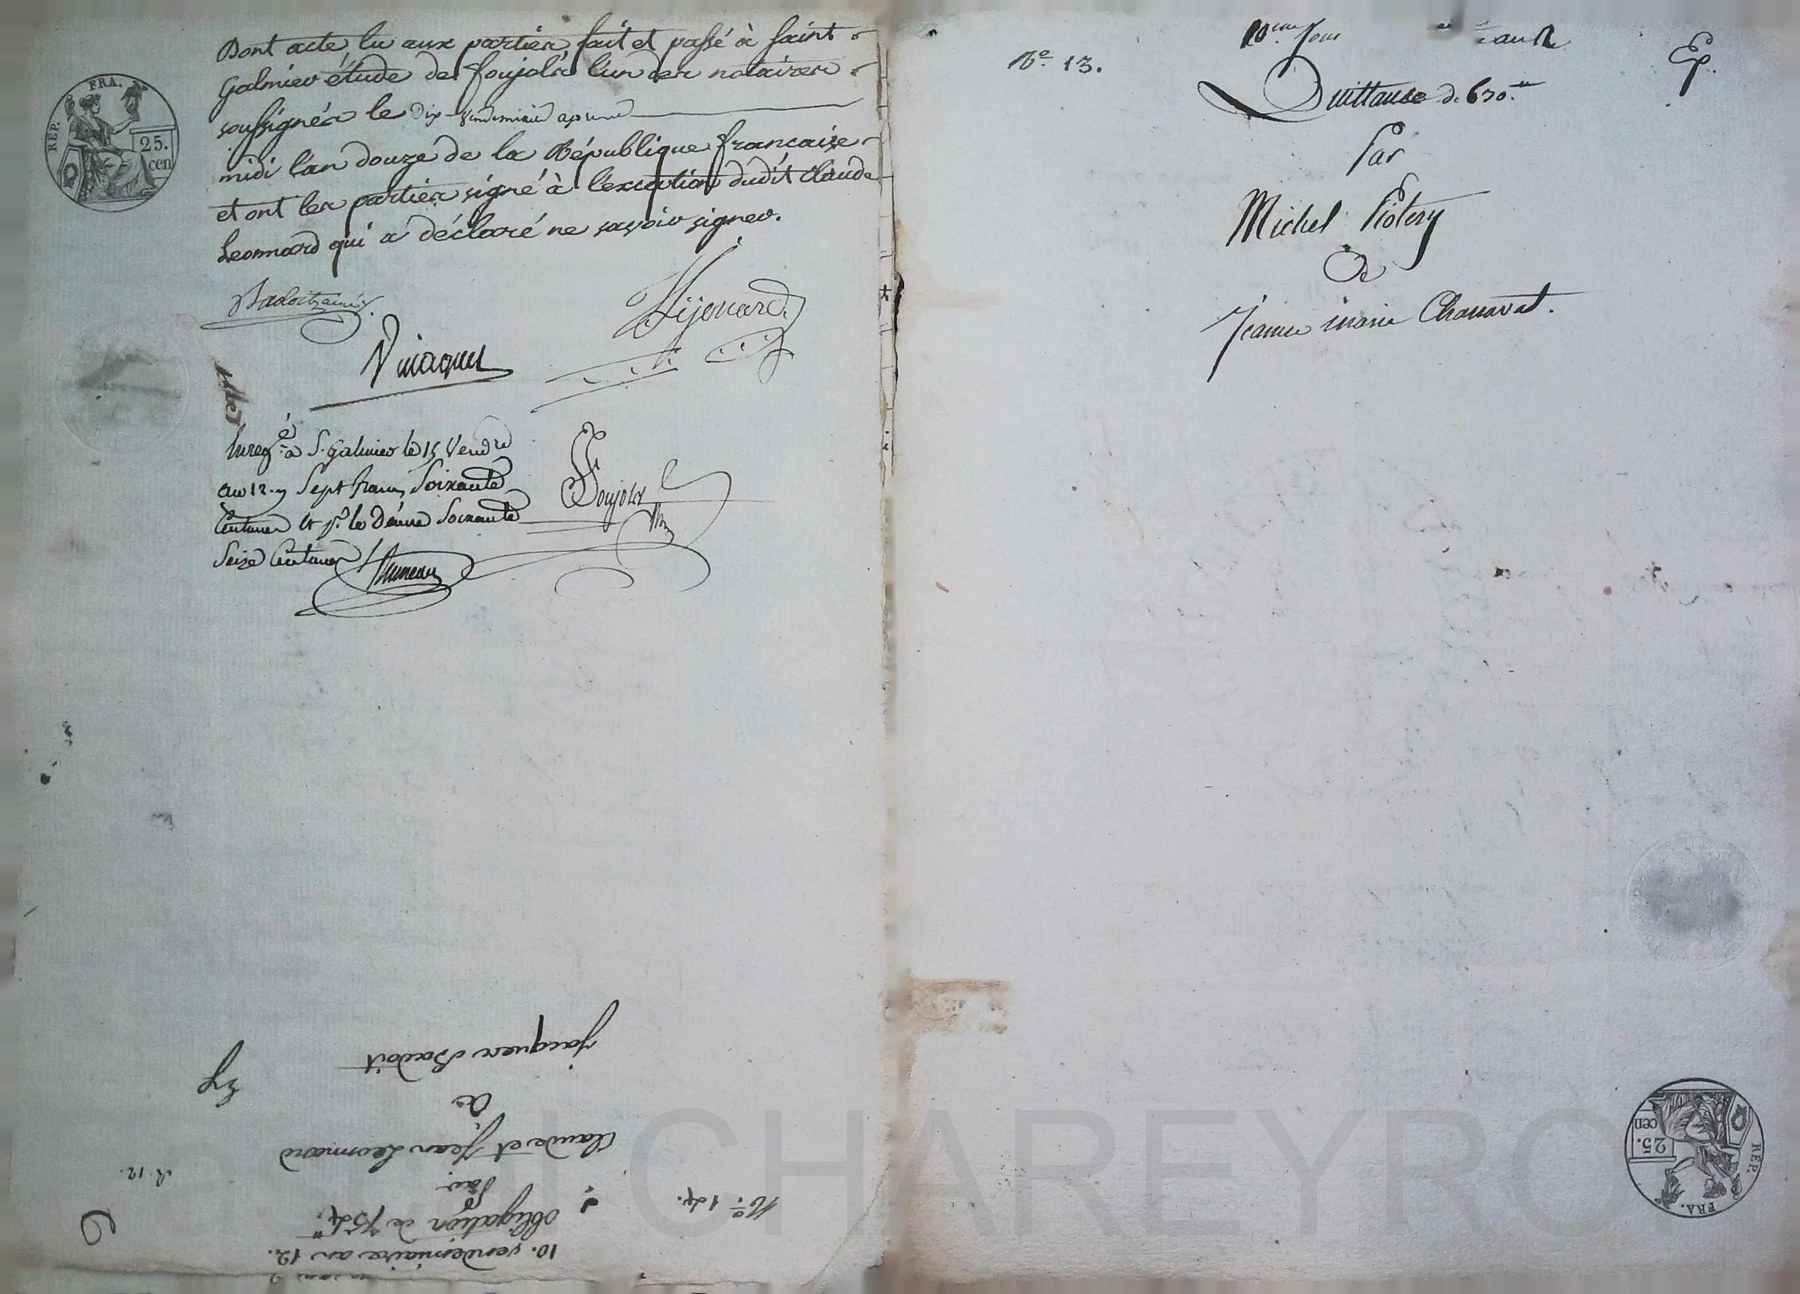 Dont acte lu aux parties fait et passé à Saint
Galmier étude de Foujols l'un des notaires
soussignés le dix vendemiaire apres
midi l'an douze de la République francaise
et ont les parties signé à l'exception dudit Claude
Leonnard qui a déclaré ne savoir signer.
Badoit
Enregé a St Galmier le 15 Vendre
an 12. Sept francs Soixante
Centimes et pr le Dixme Soixante
Seize Centimes
Foujols
REP. FRA.
25.
cen
10. vendemiaire an 12.
obligation de 754.#
Par
Claude et Jean Leonnard
A
Jacques Badoit
No. 14.
No. 13.
10eme Jour an 12
Quittance de 670.#
Par
Michel
A
Jeanne marie Chanavat.
REP. FRA.
25.
cen
CHAREYRO